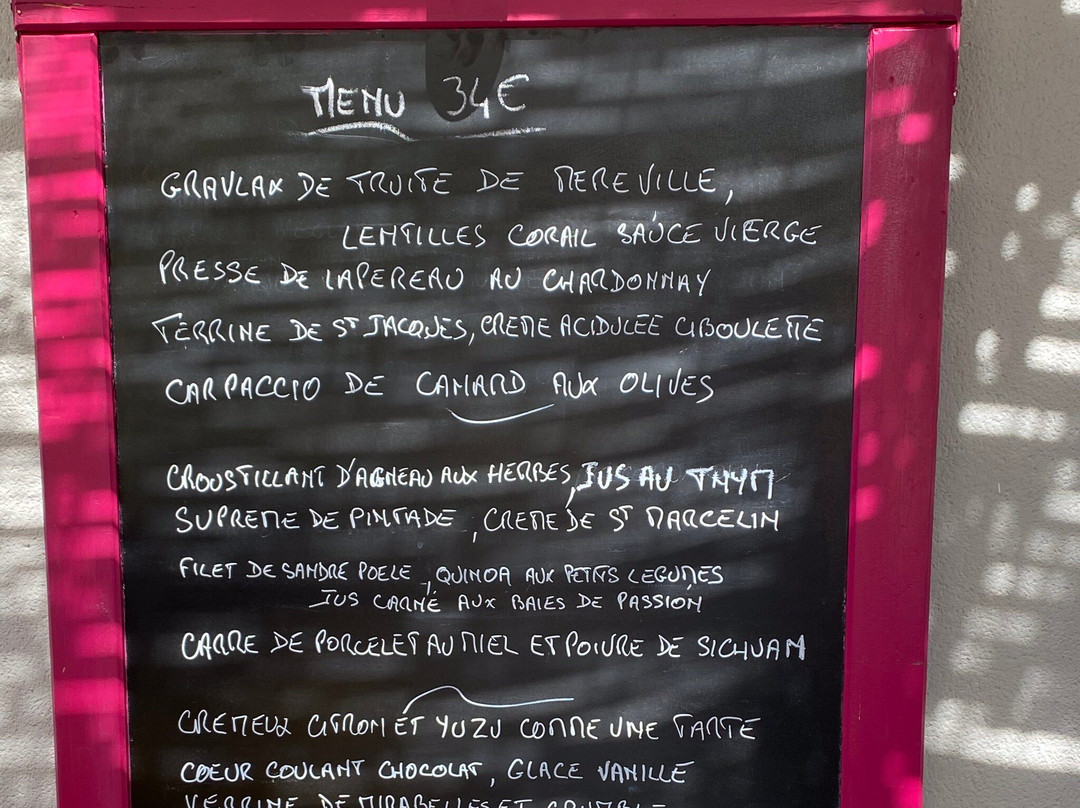 MENU 34€
GRAVLAX DE TRUITE DE MEREVILLE,
LENTILLES CORAIL SAUCE VIERGE
PRESSE DE LAPEREAU AU CHARDONNAY
TERRINE DE ST JACQUES, CREME ACIDULEE CIBOULETTE
CARPACCIO DE CANARD AUX OLIVES
CROUSTILLANT D'AGNEAU AUX HERBES, JUS AU THYM
SUPREME DE PINTADE, CREME DE ST MARCELIN
FILET DE SANDRE POELE, QUINOA AUX PETITS LEGUMES
JUS CARNÉ AUX BAIES DE PASSION
CARRE DE PORCELET AU MIEL ET POIVRE DE SICHUAN
CREMEUX CITRON ET YUZU COMME UNE TARTE
COEUR COULANT CHOCOLAT, GLACE VANILLE
VERRINE DE MIRABELLES ET CRUMBLE